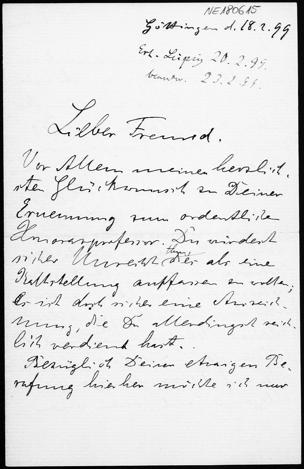 NE180615
Göttingen d. 18.2.99
Erh. Leipzig 20.2.99.
beantw. 23.2.99.
Lieber Freund.
Vor Allem meinen herzlich-
sten Glückwunsch zu Deiner
Ernennung zum ordentlichen
Honorarprofessor. Du würdest
sicher Unrecht thun dies als eine
Kaltstellung auffassen zu wollen;
es ist doch sicher eine Auszeich-
nung, die Du allerdings reich-
lich verdient hast.
Bezüglich Deiner etwaigen Be-
rufung hierher möchte ich nur